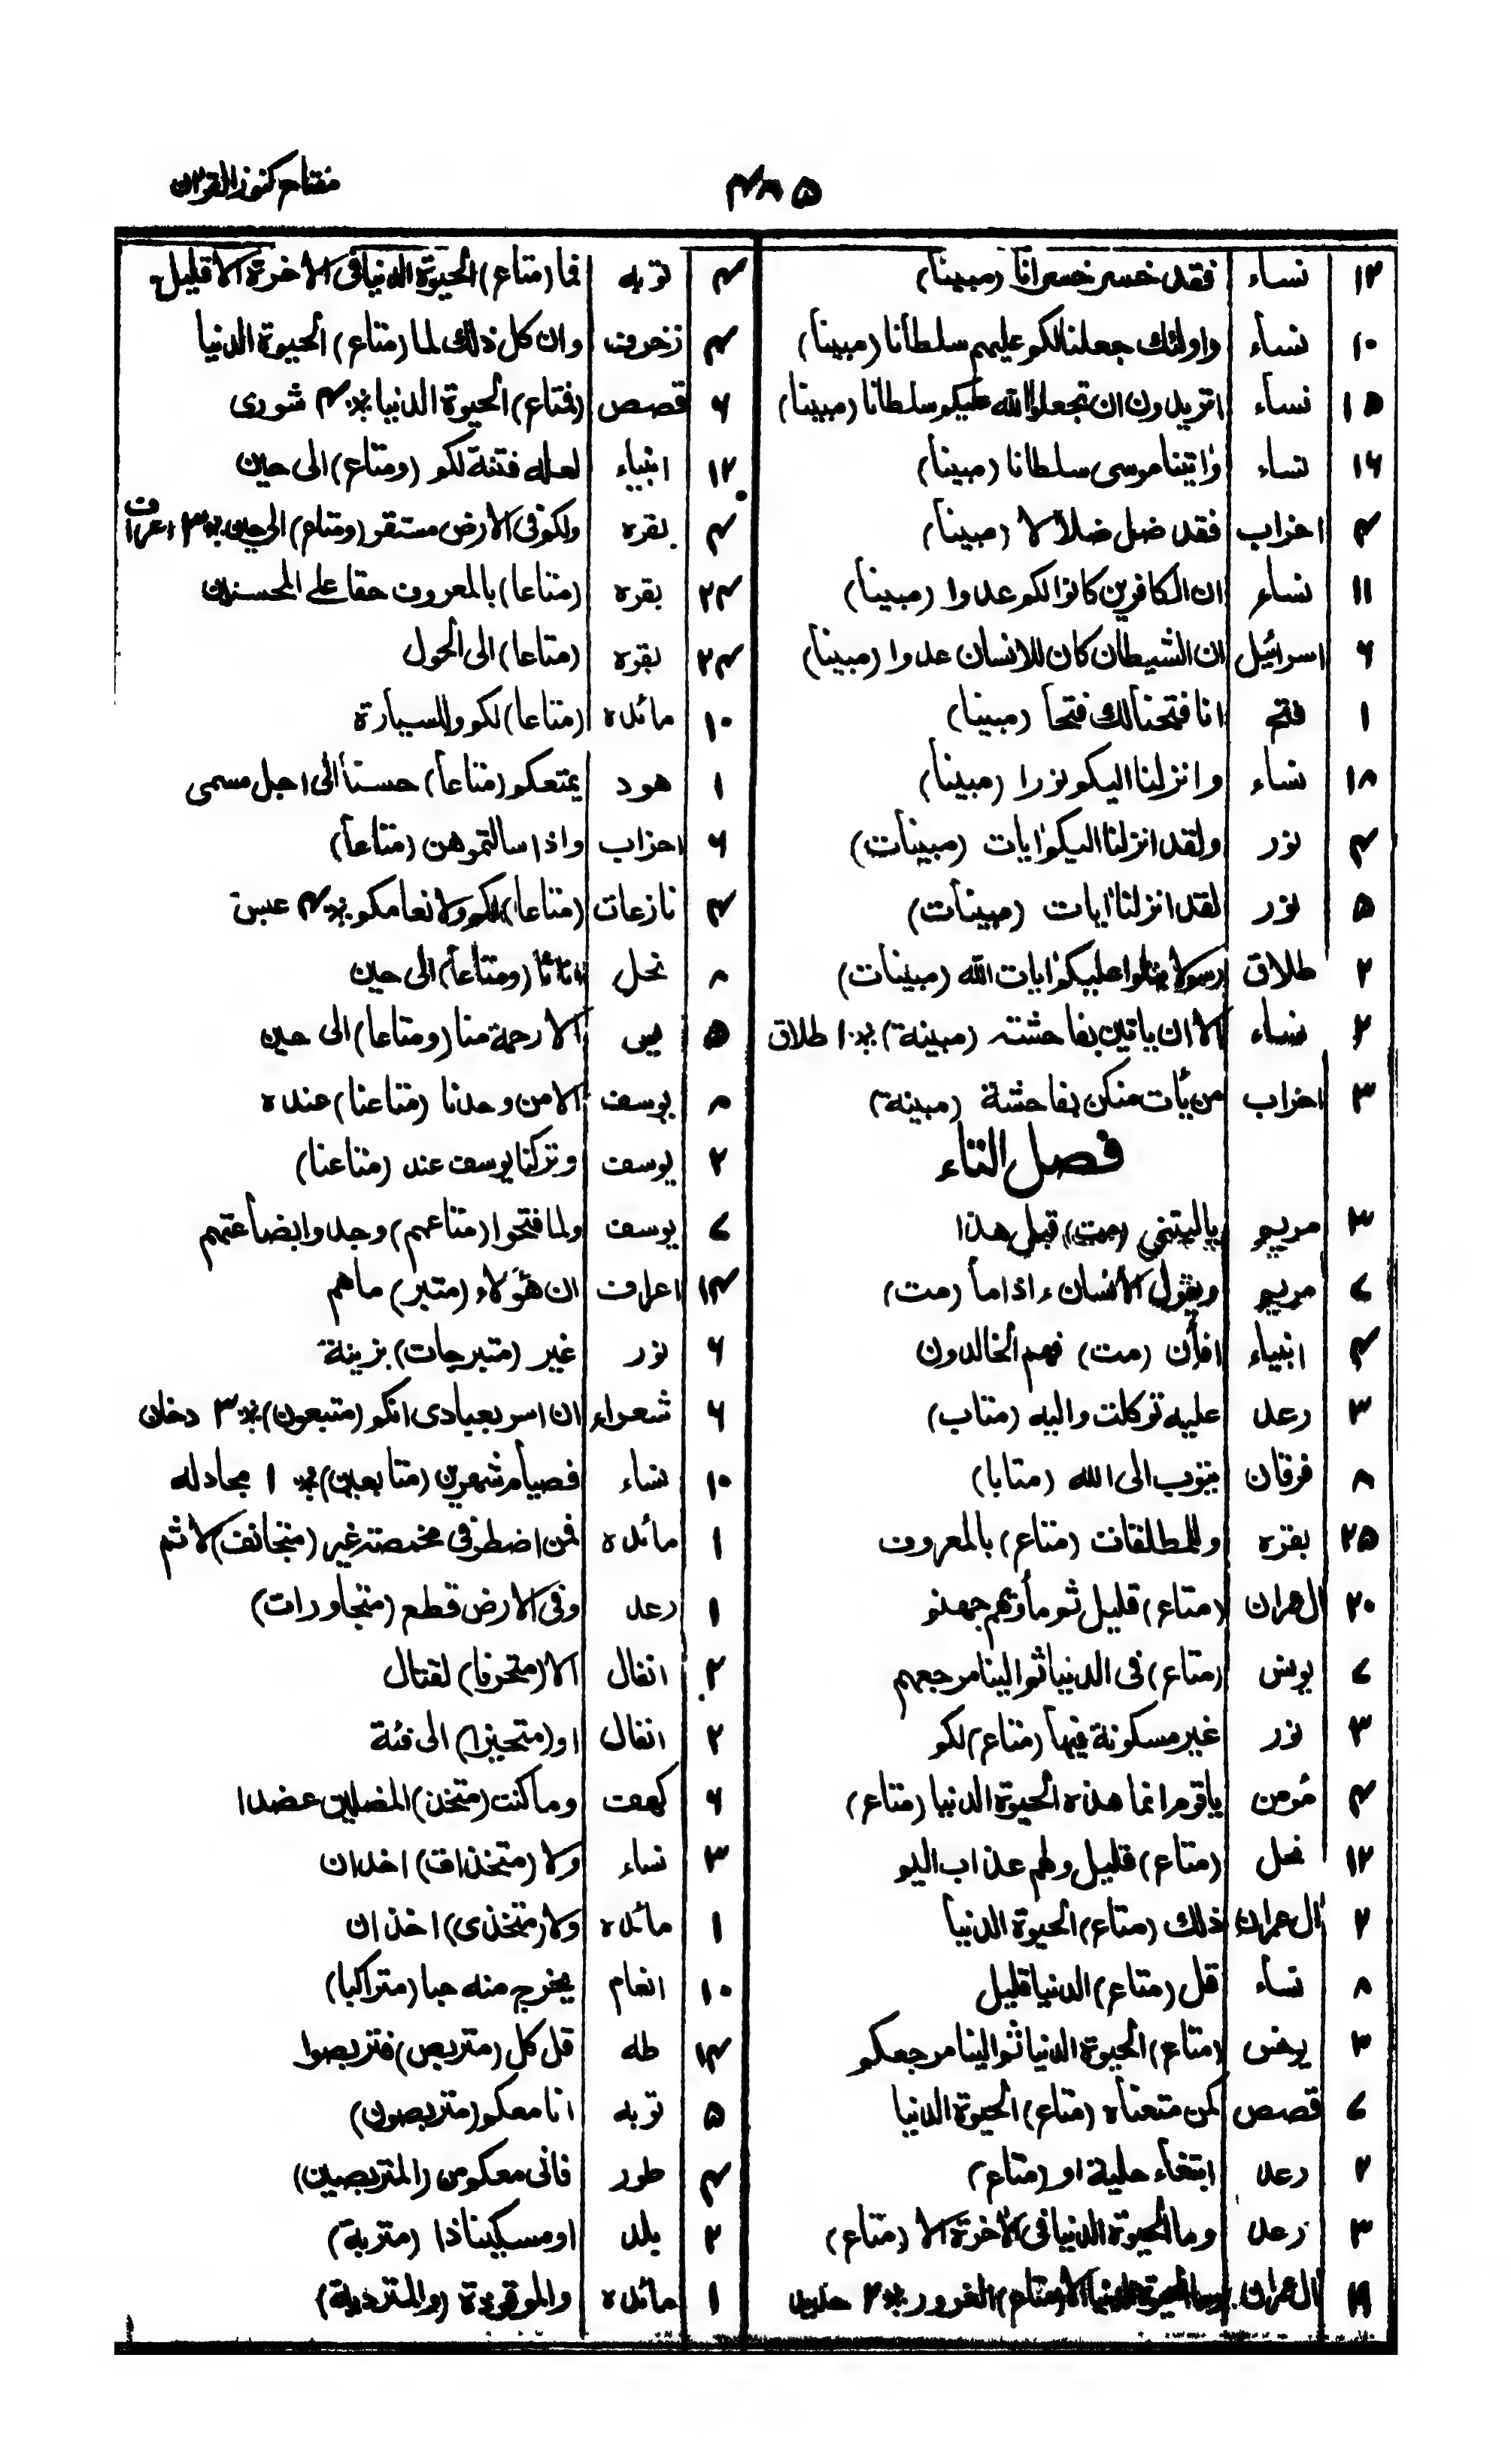 ۴۸۵
مفتاح كنوز القرآن
۱۲ نساء فقد خسر خسرانا (مبينا)
۱۰ نساء واولئك جعلنا لكم عليهم سلطانا (مبينا)
۱۵ نساء اتريدون ان تجعلوا الله عليكم سلطانا (مبينا)
۱۶ نساء واتينا موسى سلطانا (مبينا)
۴ احزاب فقد ضل ضلالا (مبينا)
۱۱ نساء ان الكافرين كانوا لكم عدوا (مبينا)
۶ اسرائيل ان الشيطان كان للانسان عدوا (مبينا)
۱ فتح انا فتحنا لك فتحا (مبينا)
۱۸ نساء وانزلنا اليكم نورا (مبينا)
۴ نور ولقد انزلنا اليكم ايات (مبينات)
۵ نور لقد انزلنا ايات (مبينات)
۲ طلاق رسولا يتلوا عليكم ايات الله (مبينات)
۲ نساء الا ان ياتين بفاحشة (مبينة) ۱ طلاق
۳ احزاب من يأت منكن بفاحشة (مبينة)
فصل التاء
۳ مريم ياليتني (مت) قبل هذا
۷ مريم ويقول الانسان ءاذا ما (مت)
۴ انبياء افأن (مت) فهم الخالدون
۳ رعد عليه توكلت واليه (متاب)
۸ فرقان يتوب الى الله (متابا)
۲۵ بقره وللمطلقات (متاع) بالمعروف
۲۰ ال عمران (متاع) قليل ثم مأوٰهم جهنم
۷ يونس (متاع) فى الدنيا ثم الينا مرجعهم
۳ نور غير مسكونة فيها (متاع) لكم
۴ مؤمن ياقوم انما هذه الحيوة الدنيا (متاع)
۱۲ نحل (متاع) قليل ولهم عذاب اليم
۲ ال عمران ذلك (متاع) الحيوة الدنيا
۸ نساء قل (متاع) الدنيا قليل
۳ يونس (متاع) الحيوة الدنيا ثم الينا مرجعكم
۷ قصص كمن متعناه (متاع) الحيوة الدنيا
۲ رعد ابتغاء حلية او (متاع)
۳ رعد وما الحيوة الدنيا فى الاخرة الا (متاع)
۱۹ ال عمران وما الحيوة الدنيا الا (متاع) الغرور ۲ حديد
۴ توبه فما (متاع) الحيوة الدنيا فى الاخرة الا قليل
۴ زخرف وان كل ذلك لما (متاع) الحيوة الدنيا
۶ قصص (فمتاع) الحيوة الدنيا ۴ شورى
۱۲ انبياء لعله فتنة لكم (ومتاع) الى حين
۴ بقره ولكم فى الارض مستقر (ومتاع) الى حين ۳ اعراف
۲۴ بقره (متاعا) بالمعروف حقا على المحسنين
۲۴ بقره (متاعا) الى الحول
۱۰ مائده (متاعا) لكم وللسيارة
۱ هود يمتعكم (متاعا) حسنا الى اجل مسمى
۶ احزاب واذا سالتموهن (متاعا)
۴ نازعات (متاعا) لكم ولانعامكم ۴ عبس
۸ نحل اثاثا (ومتاعا) الى حين
۵ يس الا رحمة منا (ومتاعا) الى حين
۸ يوسف الا من وجدنا (متاعنا) عنده
۲ يوسف وتركنا يوسف عند (متاعنا)
۷ يوسف ولما فتحوا (متاعهم) وجدوا بضاعتهم
۱۴ اعراف ان هؤلاء (متبر) ماهم
۶ نور غير (متبرجات) بزينة
۶ شعراء ان اسر بعبادى انكم (متبعون) ۳ دخان
۱۰ نساء فصيام شهرين (متتابعين) ۱ مجادله
۱ مائده فمن اضطر فى مخمصة غير (متجانف) لاثم
۱ رعد وفى الارض قطع (متجاورات)
۲ انفال الا (متحرفا) لقتال
۲ انفال او (متحيزا) الى فئة
۶ كهف وما كنت (متخذ) المضلين عضدا
۳ نساء ولا (متخذات) اخدان
۱ مائده ولا (متخذى) اخدان
۱۰ انعام يخرج منه حبا (متراكبا)
۱۴ طه قل كل (متربص) فتربصوا
۵ توبه انا معكم (متربصون)
۴ طور فانى معكم من (المتربصين)
۲ بلد او مسكينا ذا (متربة)
۱ مائده والموقوذة (والمتردية)